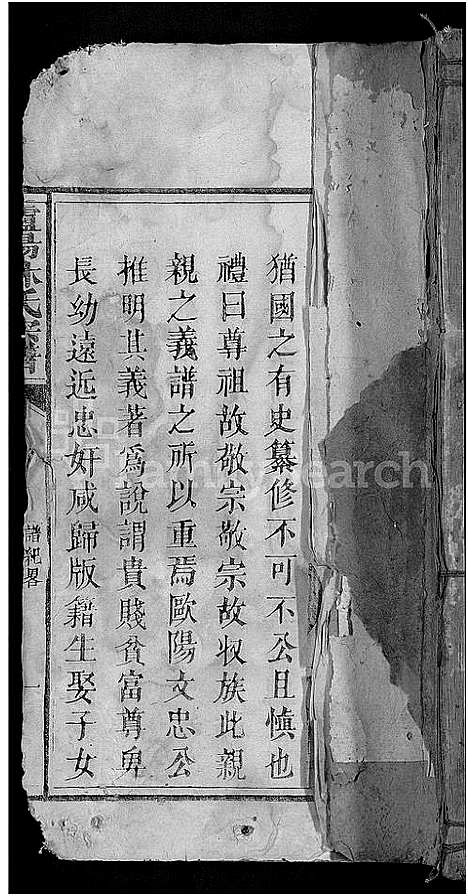 猶國之有史纂修不可不公且慎也
禮曰尊祖故敬宗敬宗故収族此親
親之義譜之所以重焉歐陽文忠公
推明其義著爲說謂貴賤貧富尊卑
長幼遠近忠奸咸歸版籍生娶子女
林氏宗譜
譜紀畧
一
FamilySearch